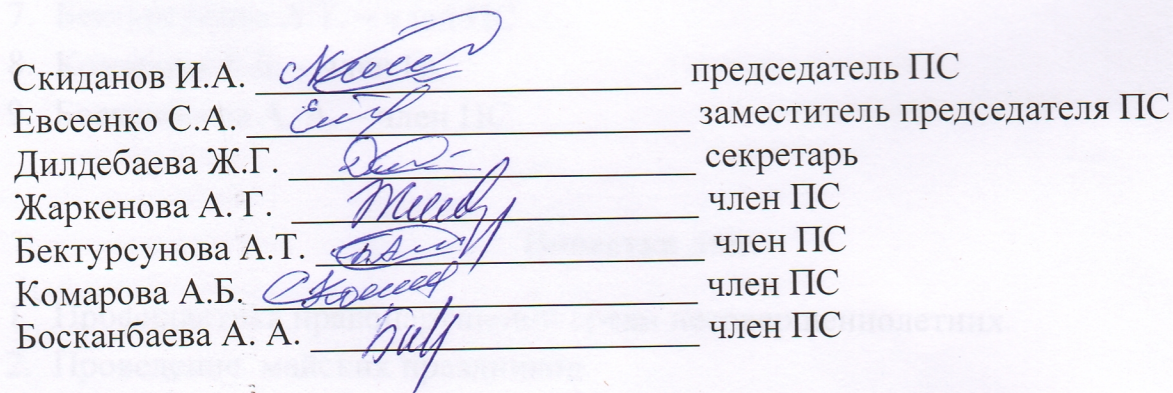 Скиданов И.А. ________________ председатель ПС
Евсеенко С.А. ________________ заместитель председателя ПС
Дилдебаева Ж.Г. ________________ секретарь
Жаркенова А. Г. ________________ член ПС
Бектурсунова А.Т. ________________ член ПС
Комарова А.Б. ________________ член ПС
Босканбаева А. А. ________________ член ПС